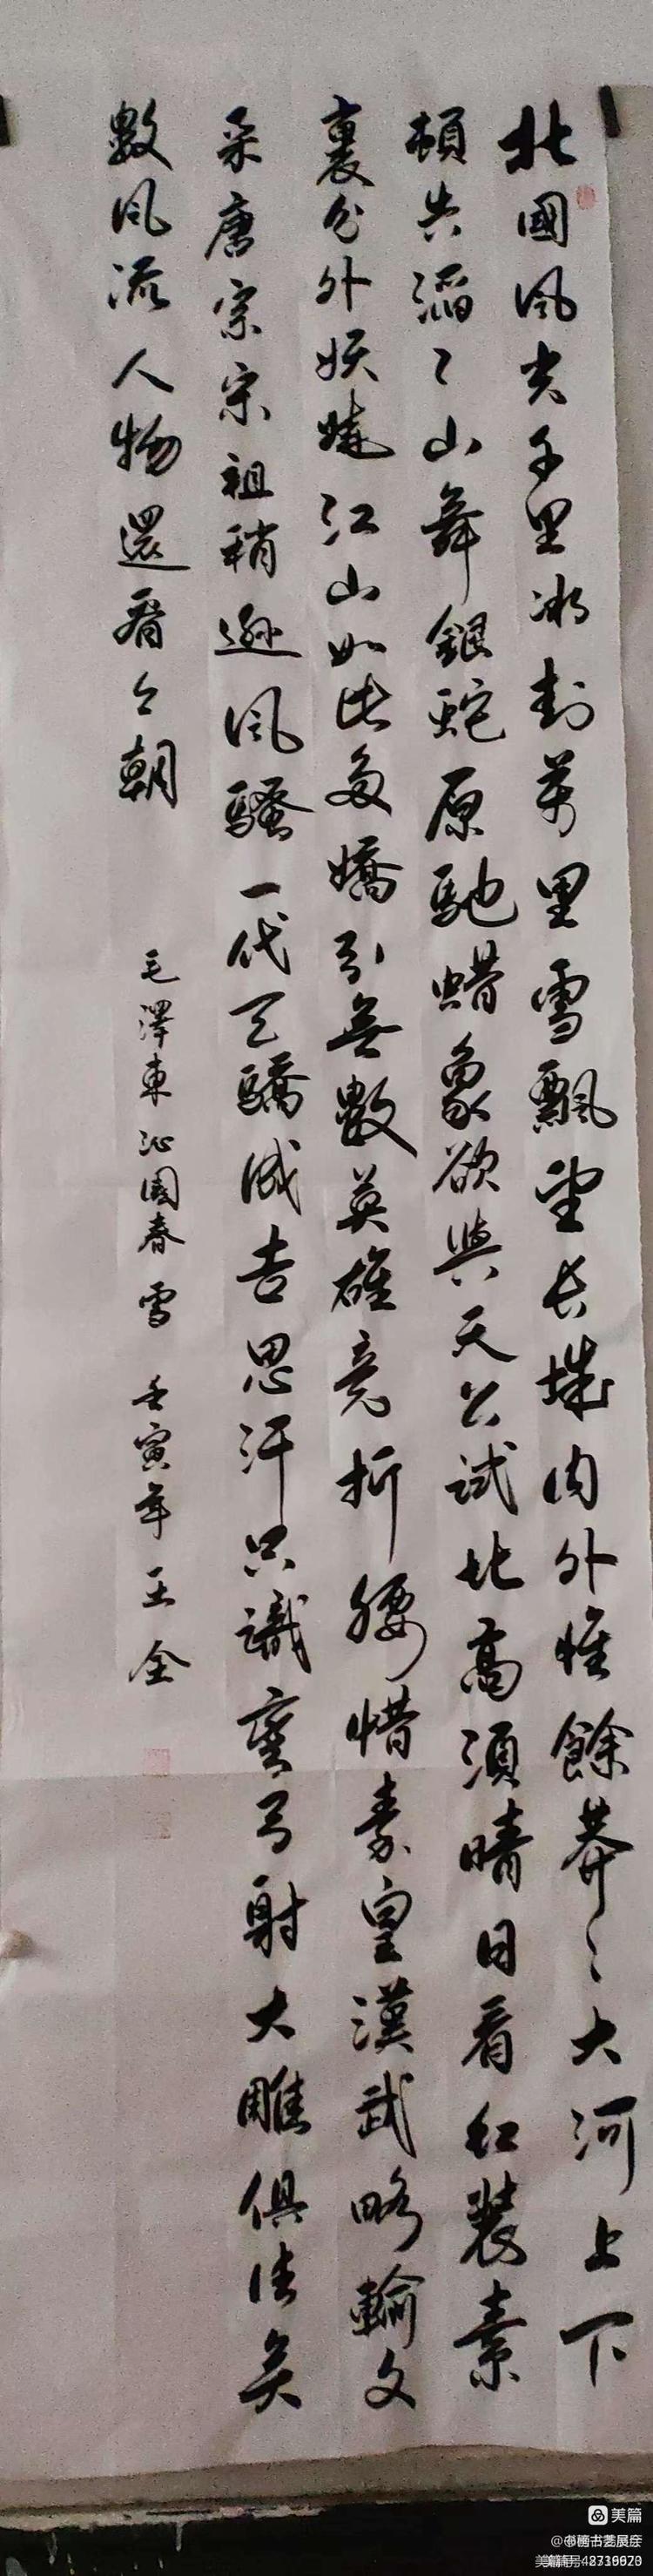 北國風光千里冰封萬里雪飄望長城内外惟餘莽〻大河上下
頓失滔〻山舞銀蛇原馳蜡象欲與天公試比高須晴日看紅裝素
裹分外妖嬈江山如此多嬌引無數英雄竞折腰惜秦皇漢武略輸文
采唐宗宋祖稍遜風騷一代天驕成吉思汗只識彎弓射大雕俱往矣
數風流人物還看今朝
毛澤東沁園春雪 壬寅年王全
美篇